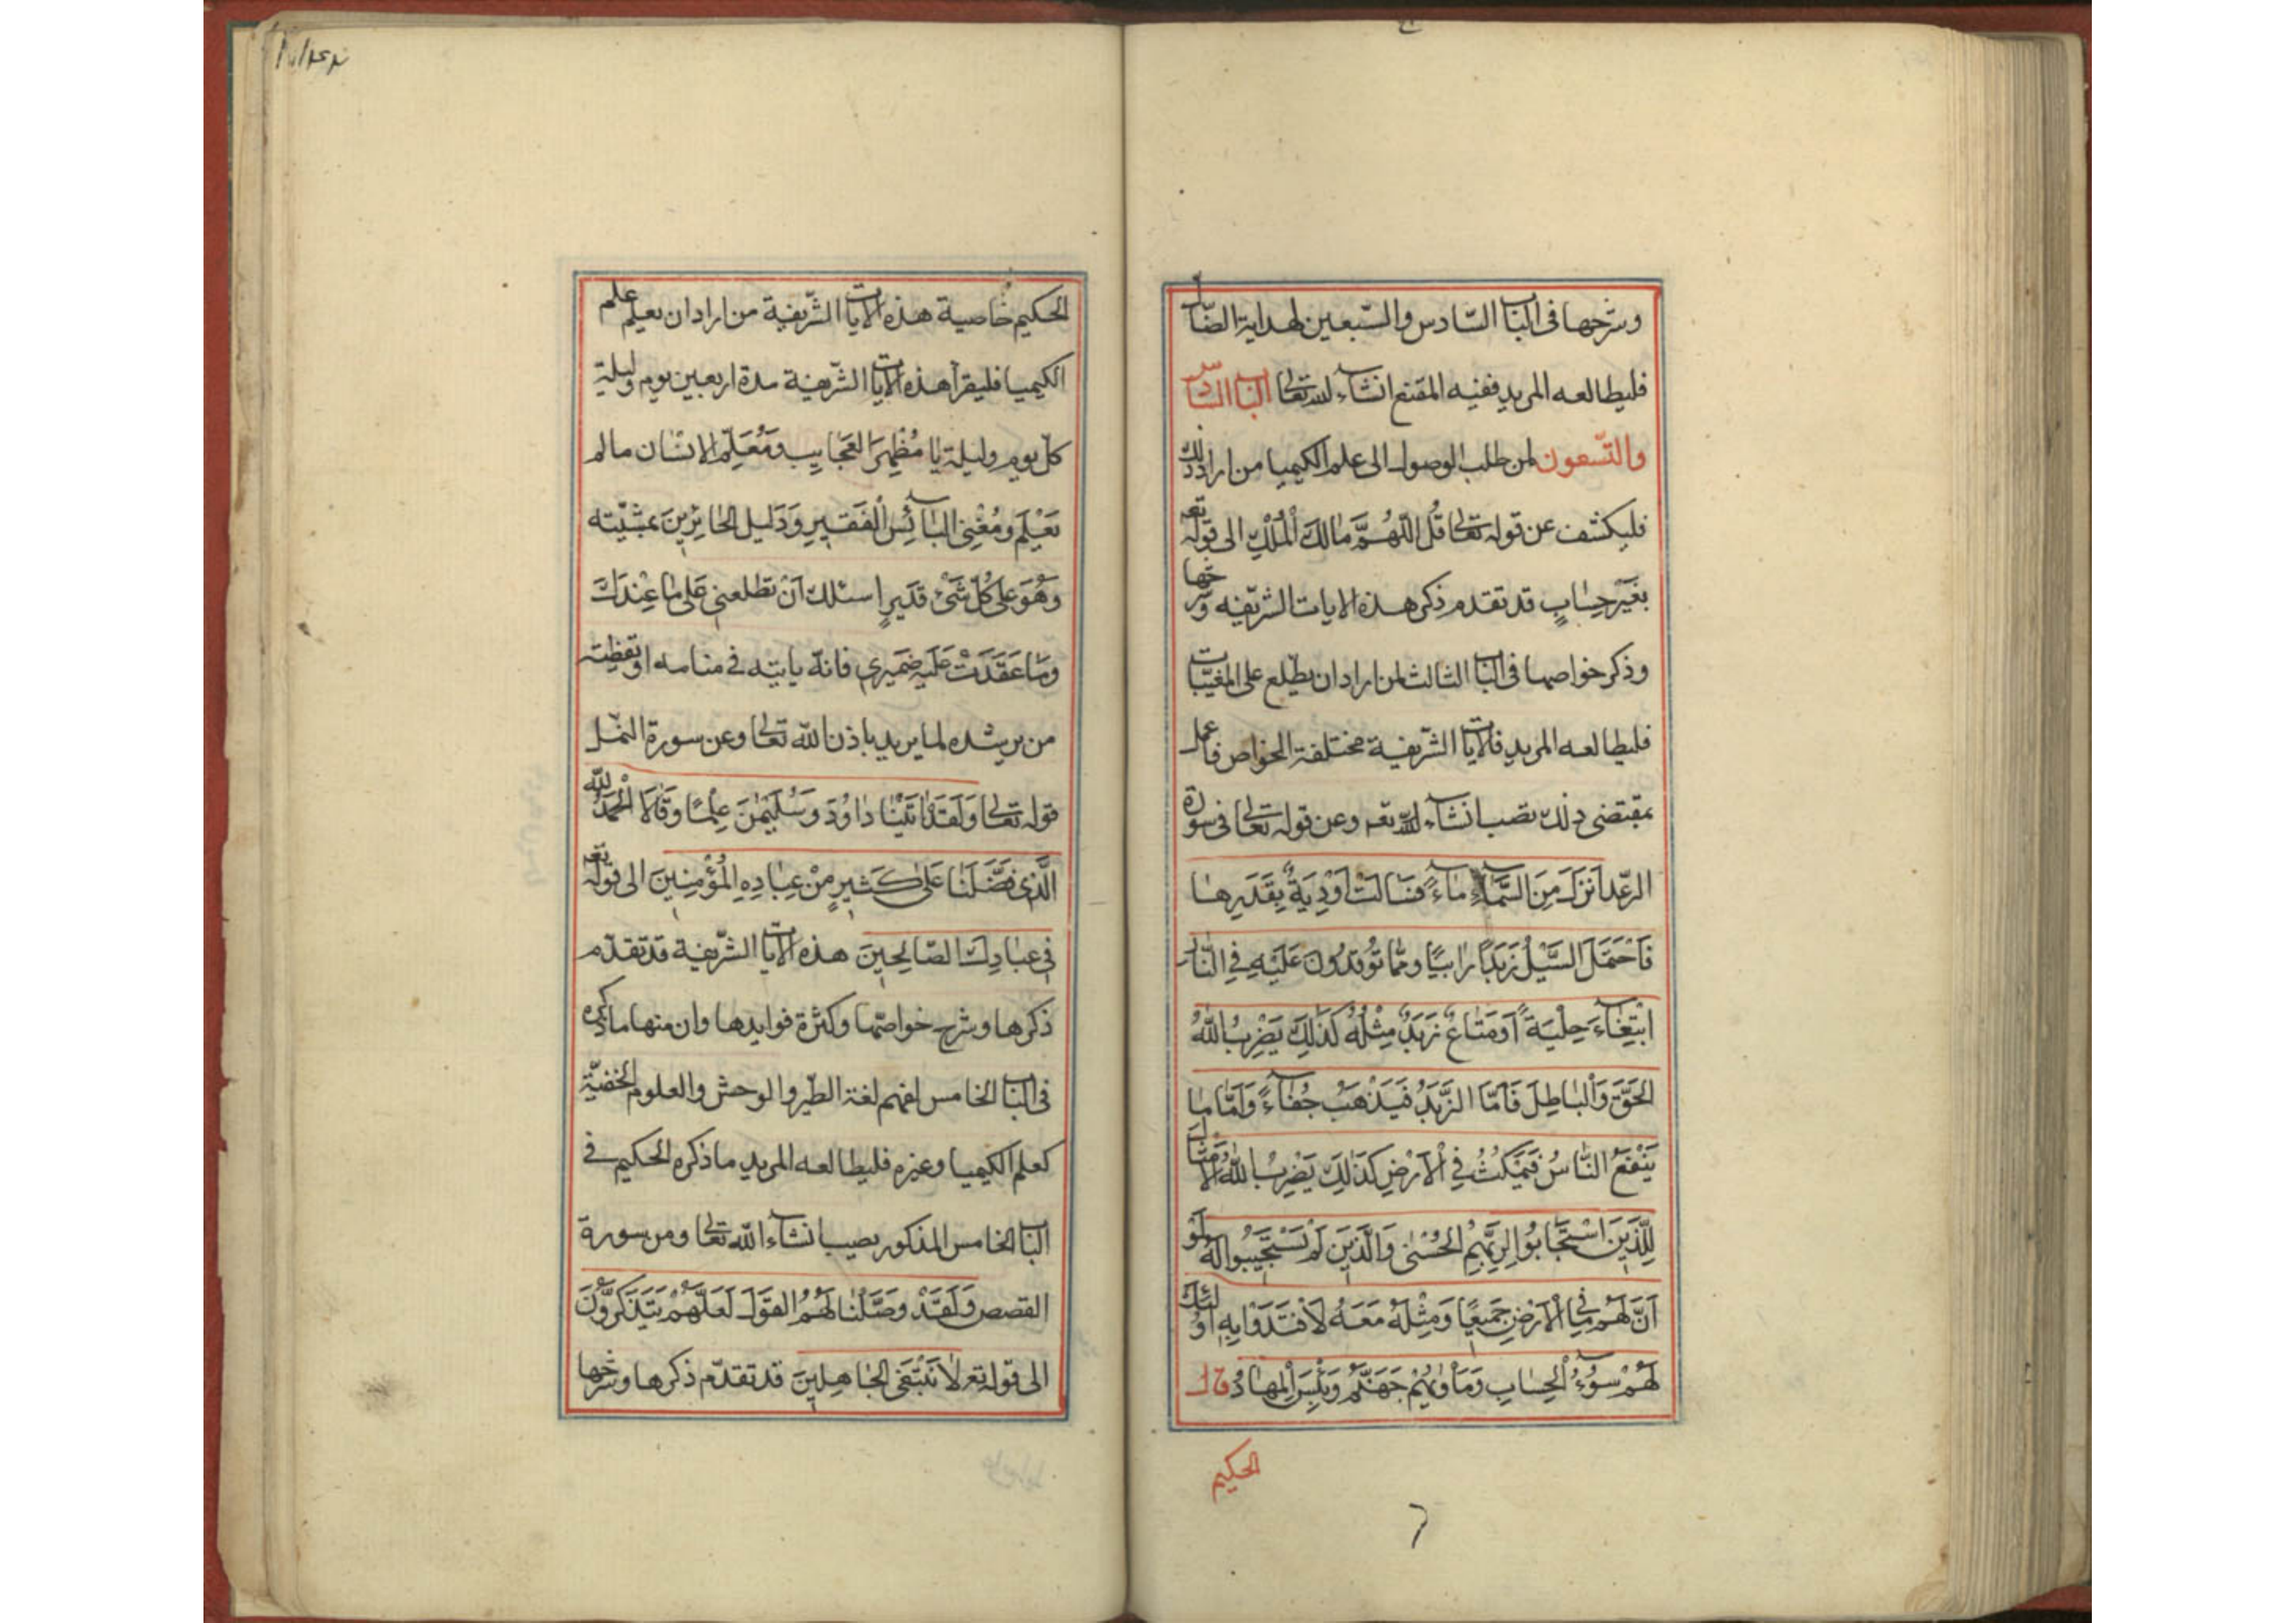 وشرحها فى الباب السّادس والسّبعين لهداية الضّال
فليطالعه المريد ففيه المقنع انشاء لله تعالى الباب السّادس
والتّسعون لمن طلب الوصول الى علم الكيميا من اراد ذلك
فليكشف عن قوله تعالى قُل اللّهُمَّ مَالِكَ الْمُلْكِ الى قوله تعه
بِغَيْرِ حِسَابٍ قد تقدم ذكر هذه الايات الشريفه وشرحها
وذكر خواصها فى الباب الثالث لمن اراد ان يطّلع على المغيّبات
فليطالعه المريد فالايات الشّريفية مختلفة الخواص فاعمل
بمقتضى ذلك تصب انشاء للّه تعه وعن قوله تعالى فى سورة
الرعّد اَنزَلَ مِنَ السَّمَاءِ مَاءً فَسَالَتْ اَوْدِيَةٌ بِقَدَرِهَا
فَاحْتَمَلَ السَّيْلُ زَبَداً رَابيًا وممَّا تُوقِدُونَ عَلَيْهِ فِي النَّارِ
ابْتِغَاءَ حِلْيَةً اَومَتَاعٌ زَبَدٌ مِثْلُهُ كَذَلِكَ يَضْرِبُ اللَّهُ
الحَقَّ وَالْبَاطِلَ فَاَمَّا الزَّبَدُ فَيَذْهَبُ جُفَاءً وَاَمَّا مَا
يَنْفَعُ النَّاسُ فَيَمْكُثُ فِي الْاَرْضِ كَذَلِكَ يَضْرِبُ اللَّهُ الاَمْثَالَ
لِلَّذِينَ اسْتَجَابُوا لِرَبِّهِمُ الحُسْنٰى وَالَّذِينَ لَمْ يَسْتَجِيبُوا لَهُ لَوْ
اَنَّ لَهُمْ مَا فِي الْاَرْضِ جَمِيعًا وَمِثْلَهُ مَعَهُ لاَفْتَدَوْا بِهِ اُولٰئِكَ
لَهُمْ سُوُءُ الْحِسَابِ وَمَأْوٰيهُمْ جَهَنَّمُ وَبِئْسَ الْمِهَادُ قال
الحكيم
الحكيم خاصية هذه الايات الشّريفية من اراد ان يعلم علم
الكيميا فليقرأ هذه الايات الشّريفية مدة اربعين يوم وليلة
كلّ يوم وليلة يَا مُظْهِرَ العَجَايِبِ وَمُعَلِّمَ الانسَان ما لم
يَعْلَم ومُغْنِى البَائِسِ الْفَقِيرِ وَدَلِيل الحَائِرِينَ بمشيّته
وَهُوَ عَلى كُلِّ شَىْءٍ قَدِيرٍ اسئلك اَنْ تطلعنى عَلَى مَا عِنْدَكَ
وَمَا عَقَدَتْ عَلَيْهِ ضَمِيرِى فانه ياتيه فى منامه او يقظته
من يرشده لما يريد باذن الله تعالى وعن سورة النمّل
قوله تعالى وَلَقَدْ اٰتَيْنَا دَاوُدَ وَسُلَيْمٰنَ عِلْمًا وَقَالَا الْحَمْدُ للّه
الَّذِى فَضَّلَنَا عَلَى كَثِيرٍ مِنْ عِبَادِهِ الْمُؤْمِنِينَ الى قوله تعه
فِى عبَادِكَ الصَّالِحِينَ هذه الايات الشّريفية قد تقدّم
ذكرها وشرح خواصّها وكثرة فوايدها وان منها ما ذكره
فى الباب الخامس لفهم لغة الطّير والوحش والعلوم الخفيّة
كعلم الكيميا وغيره فليطالعه المريد ما ذكره الحكيم فى
الباب الخامس المذكور يصيب انشاء الله تعالى ومن سورة
القصص وَلَقَدْ وَصَّلْنَا لَهُمُ القَوْلَ لَعَلَّهُمْ يَتَذَكَّرُونَ
الى قوله تعه لاَ نَبْتَغِى الجَاهِلِينَ قد تقدّم ذكرها وشرحها